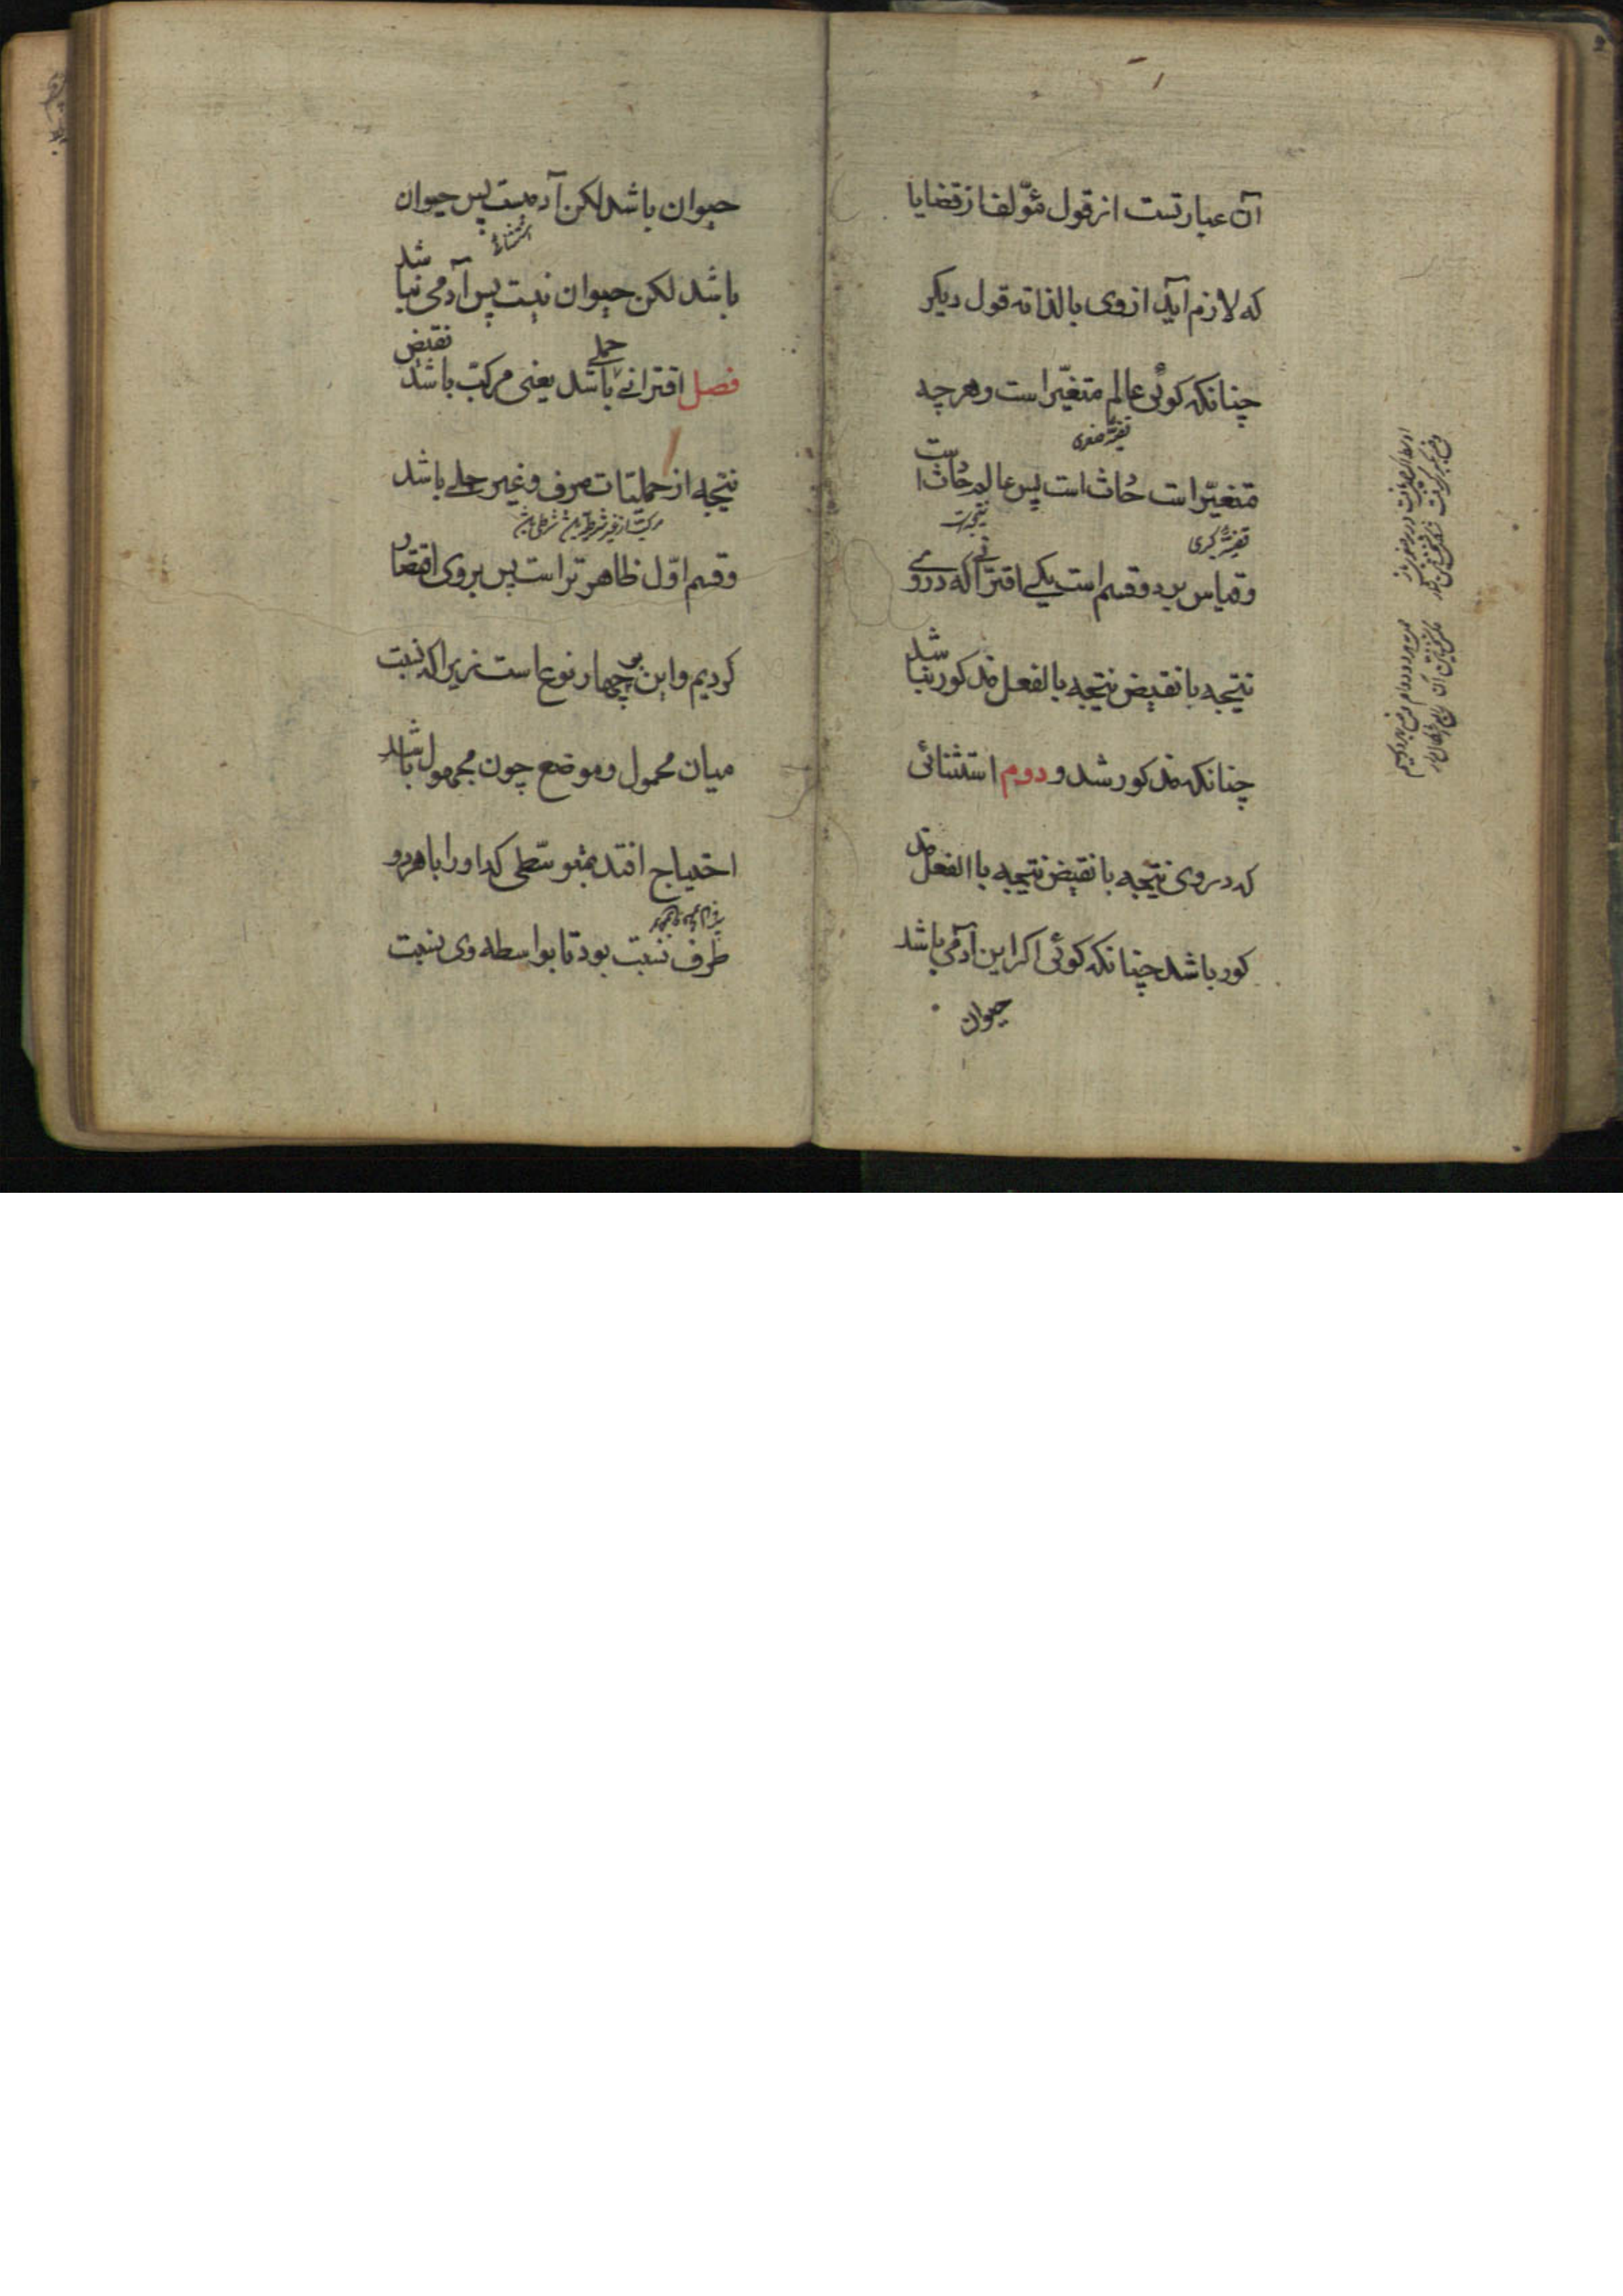 آن عبارتست از قول مؤلف از قضایا
که لازم آید از وی بالذاته قول دیکر
چنانکه کوئی عالم متغیّر است و هرچه
قضیّهٔ صغری
متغیّر است حُادث است پس عالم حُادث است
قضیّهٔ کبری
وقیاس بر دو قسم است یکے اقترانے که دروے
نتیجه یا نقیض نتیجه بالفعل مذکور نباشد
چنانکه مذکور شد و دوم استثنائی
که در وی نتیجه یا نقیض نتیجه باالفعل مذ
کور باشد چنانکه کوئی اکر این آدمی باشد
حیوان
حیوان باشد لکن آدمیست پس حیوان
استثناء
باشد لکن حیوان نیست پس آدمی نباشد
نقیض
فصل اقترانے حملے باشد یعنی مرکّب باشد
نتیجه از حملیّات صرف و غیر حملے باشد
وقسم اوّل ظاهر تر است پس بر وی اقتصار
کردیم و این بر چهار نوع است زیراکه نسبت
میان محمول و موضع چون مجهول باشد
احتیاج افتد بمتوسّطی که او را با هر دو
طرف نسبت بود تا بواسطه وی نسبت